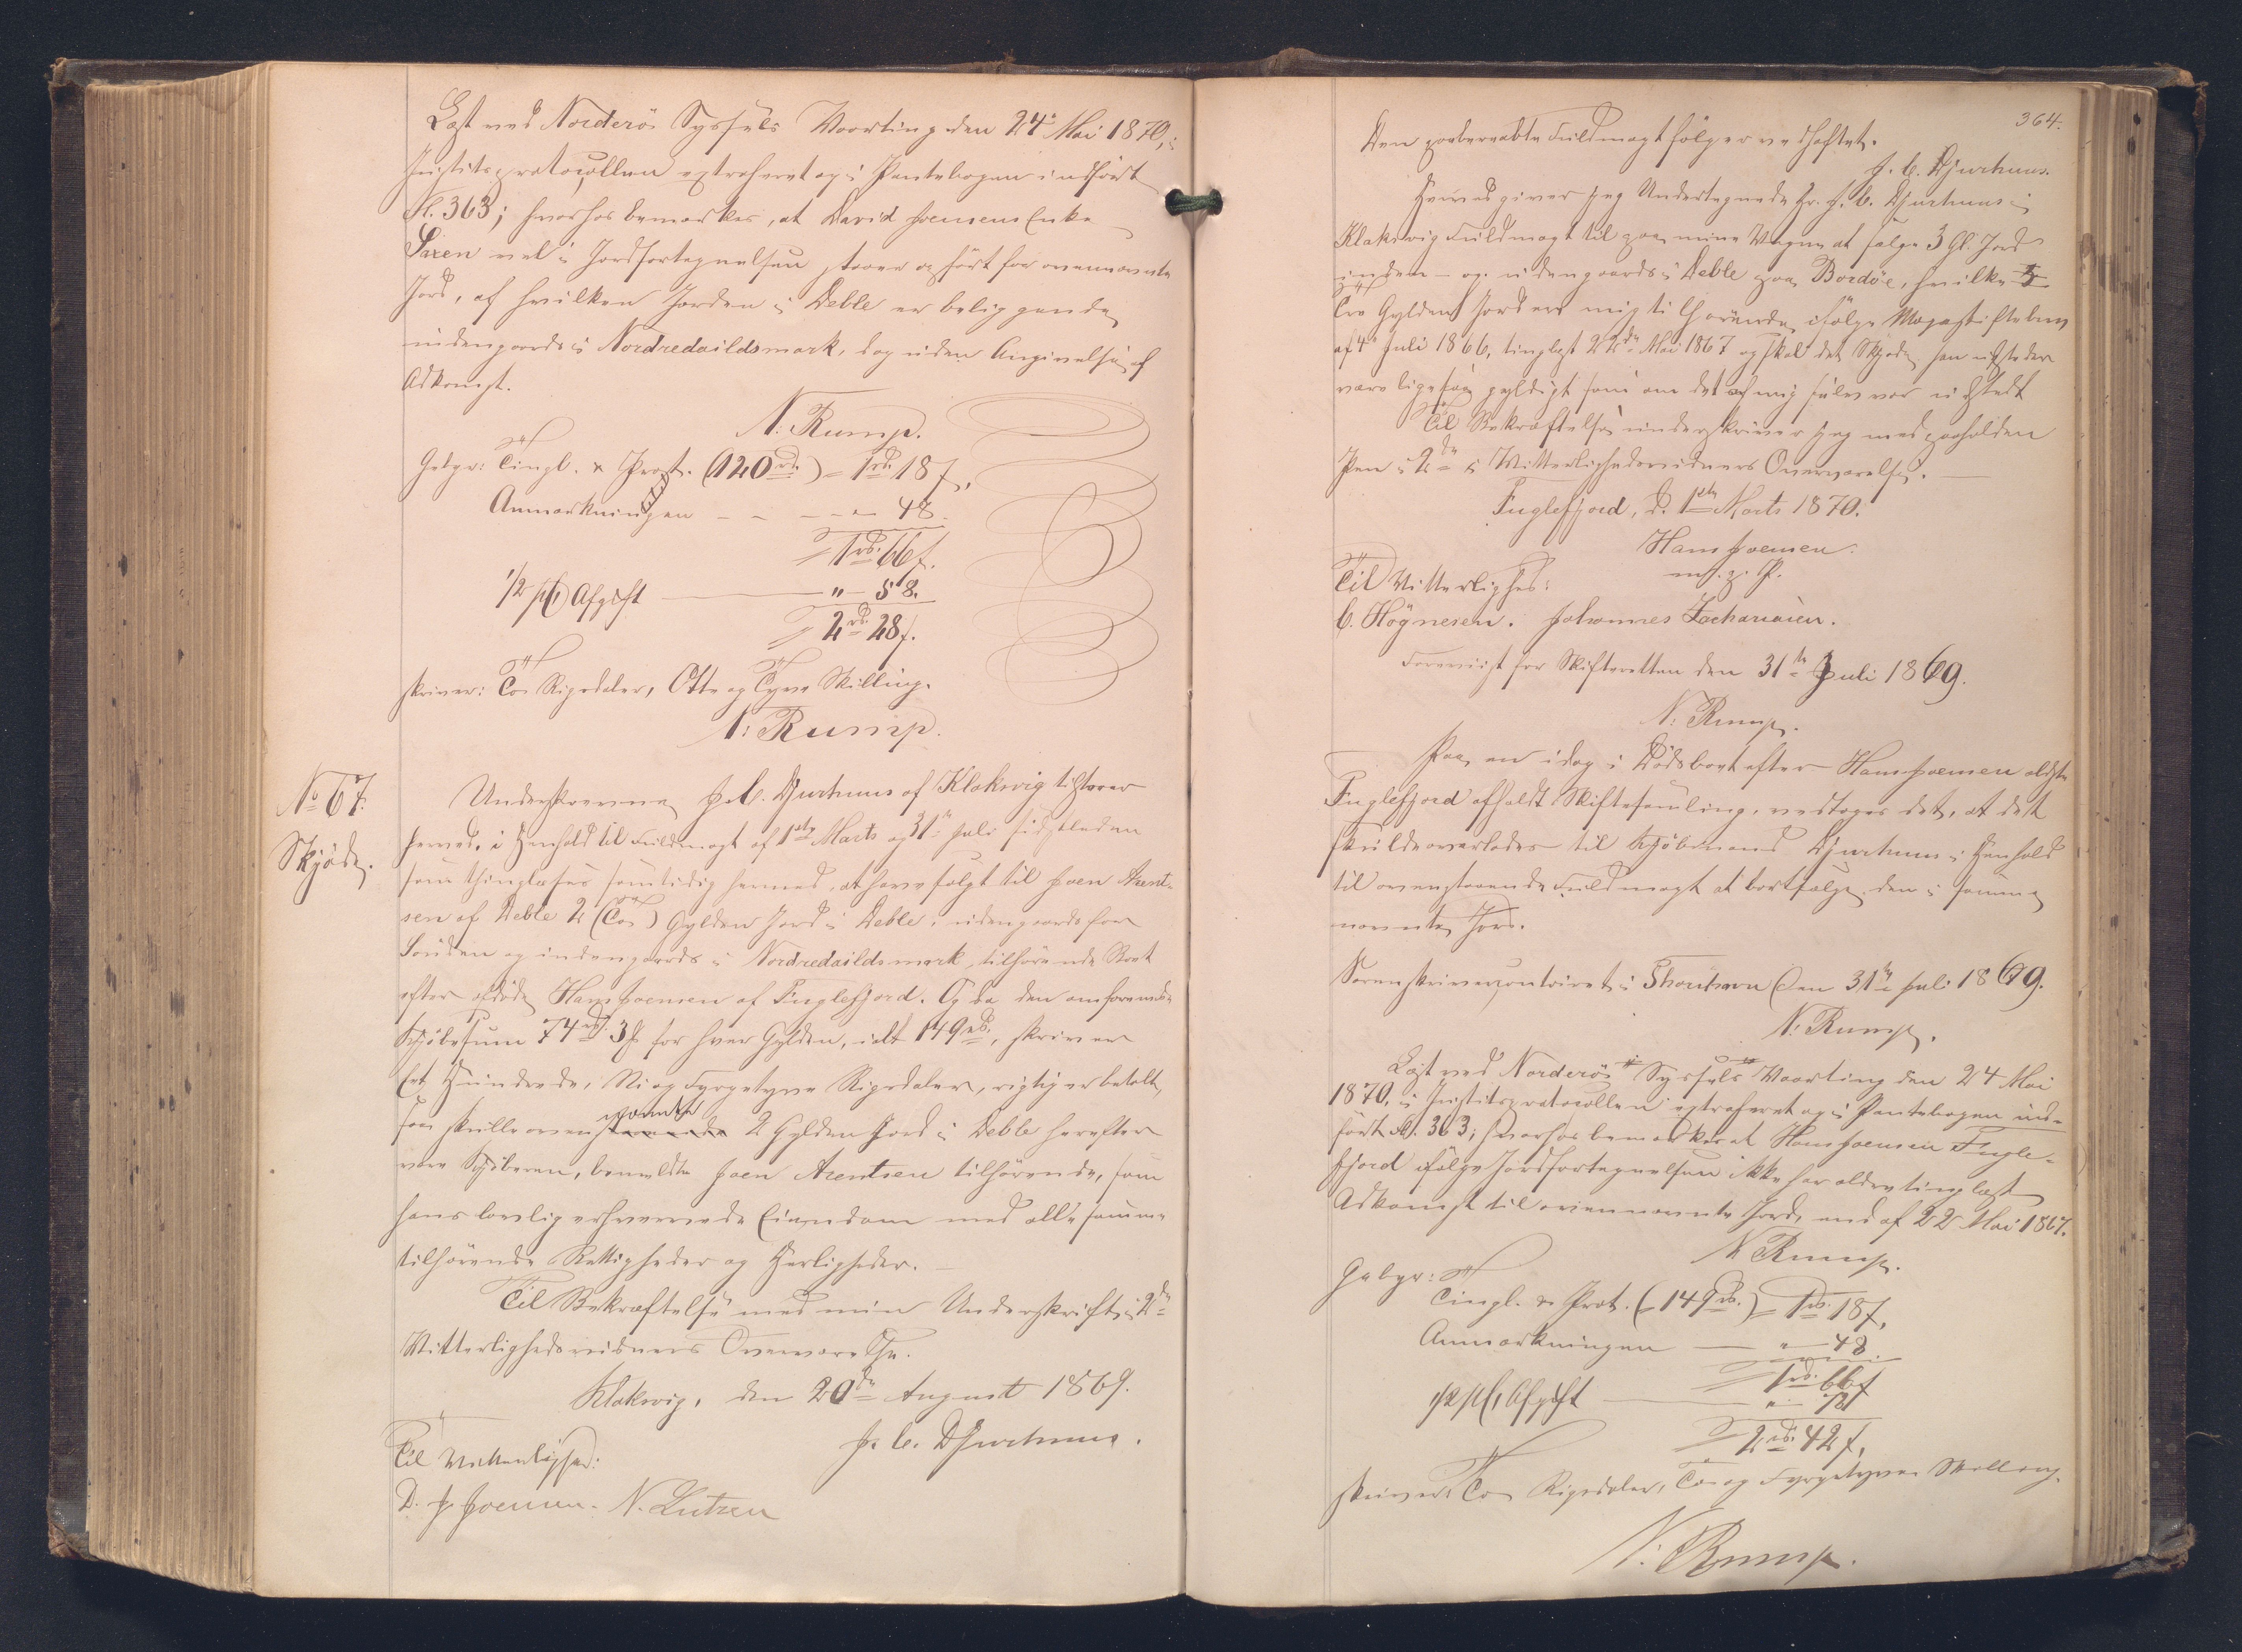 Læst ved Norderö Syssels Vaarting den 24 Mai 1870, i
Justitsprotocollen extraheret og i Pantebogen indført
Fl. 363; hvorhos bemærkes, at David Joensens Enke
Saxen ved i Jordfortegnelsen staaer opført for ovennævnte
Jord, af hvilken Jorden i Deble er beliggende
udengaards i Nordredailds mark, dog uden Angivelse af
Adkomst.
N. Rump.
Gebyr: Tingl. & Prot. (120 rd.) = 1 rd. 18 ß.
Anmærkningen - - - " - 48
1 rd. 66 ß.
1/2 pCt Afgift — " - 58.
2 rd. 28 ß.
skriver: To Rigsdaler, Otte og Tyve Skilling.
N: Rump.
No 67.
Skjöde.
Underskrevne J. C. Djurhuus af Klakvig tilstaaer
herved, i Henhold til Fuldmagt af 1ste Marts og 31te Juli sidstleden
som thinglæses samtidig hermed, at have solgt til Joen Arent-
sen af Deble 2 (To) Gylden Jord i Deble, udengaards for
Sönden og indengaards i Nordredailds mark, tilhörende Boet
efter afdöde Hans Joensen af Fuglefjord. Og da den omforenede
Kjöbesum 74 rd. 3 ß for hver Gylden, ialt 149 rd., skriver
Et Hundrede, Ni og Fyrgetyve Rigsdaler, rigtig er betalt,
saa skulle ovennævnte 2 Gylden Jord i Deble herefter
være Kjöberen, bemeldte Joen Arentsen tilhörende, som
hans lovlig erhvervede Eiendom med alle samme
tilhörende Rettigheder og Herligheder.
Til Bekræftelse med min Underskrift i 2de
Vitterlighedsvidners Overværelse.
Klakvig, den 20de August 1869.
J. C. Djurhuus.
Til Vitterlighed:
D. J. Joensen. N. Lützen
364.
Den paaberaabte Fuldmagt fölger vedhæftet.
J. C. Djurhuus.
Herved giver jeg Undertegnede Hr. J. C. Djurhuus i
Klaksvig Fuldmagt til paa mine Vegne at sælge 3 Gl. Jord
inden- og udengaards i Deble paa Bordöe, hvilke 3
Tre Gylden Jord ere mig tilhörende ifölge Mageskiftebrev
af 4 Juli 1866, tinglæst 22de Mai 1867 og skal det Skjöde han udsteder
være ligesaa gyldigt som om det af mig selv var udstedt
Til Bekræftelse underskriver jeg med paaholden
Pen i 2de Vitterlighedsvidners Overværelse.
Fuglefjord, d. 1ste Marts 1870.
Hans Joensen.
m. p. P.
Til Vitterlighed:
C. Högnesen. Johannes Zachariasen.
Foreviist for Skifteretten den 31te Juli 1869.
N: Rump.
Paa en idag i Dödsboet efter Hans Joensen ældste
Fuglefjord afholdt Skiftesamling, vedtoges det, at det
skulde overlades til Kjöbmand Djurhuus i Henhold
til ovenstaaende Fuldmagt at bortsælge den i samme
nævnte Jord.
Sorenskrivercontoiret i Thorshavn den 31te Juli 1869.
N: Rump.
Læst ved Norderö Syssels Vaarting den 24 Mai
1870, i Justitsprotocollen extraheret og i Pantebogen ind-
fört Fl. 363; hvorhos bemærkes at Hans Joensen Fugle-
fjord ifölge Jordfortegnelsen ikke har ældre tinglæst
Adkomst til ovennævnte Jord, end af 22 Mai 1867.
N Rump.
Gebyr:
Tingl. & Prot. (149 rd.) = 1 rd. 18 ß.
Anmærkningen — " - 48.
1 rd. 66 ß
1/2 pCt Afgift — " - 72
2 rd. 42 ß.
skriver To Rigsdaler, To og Fyrgetyve Skilling.
N: Rump.